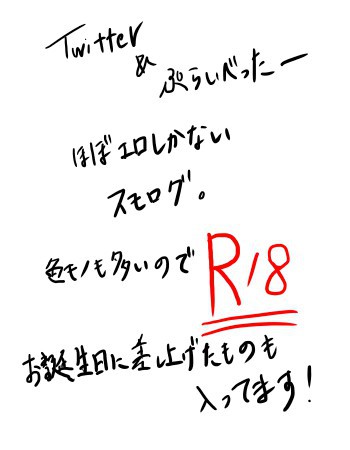 Twitter
&
ぷらいべったー
ほぼエロしかない
スモログ。
色モノも多いので
R18
お誕生日に差し上げたものも
入ってます!